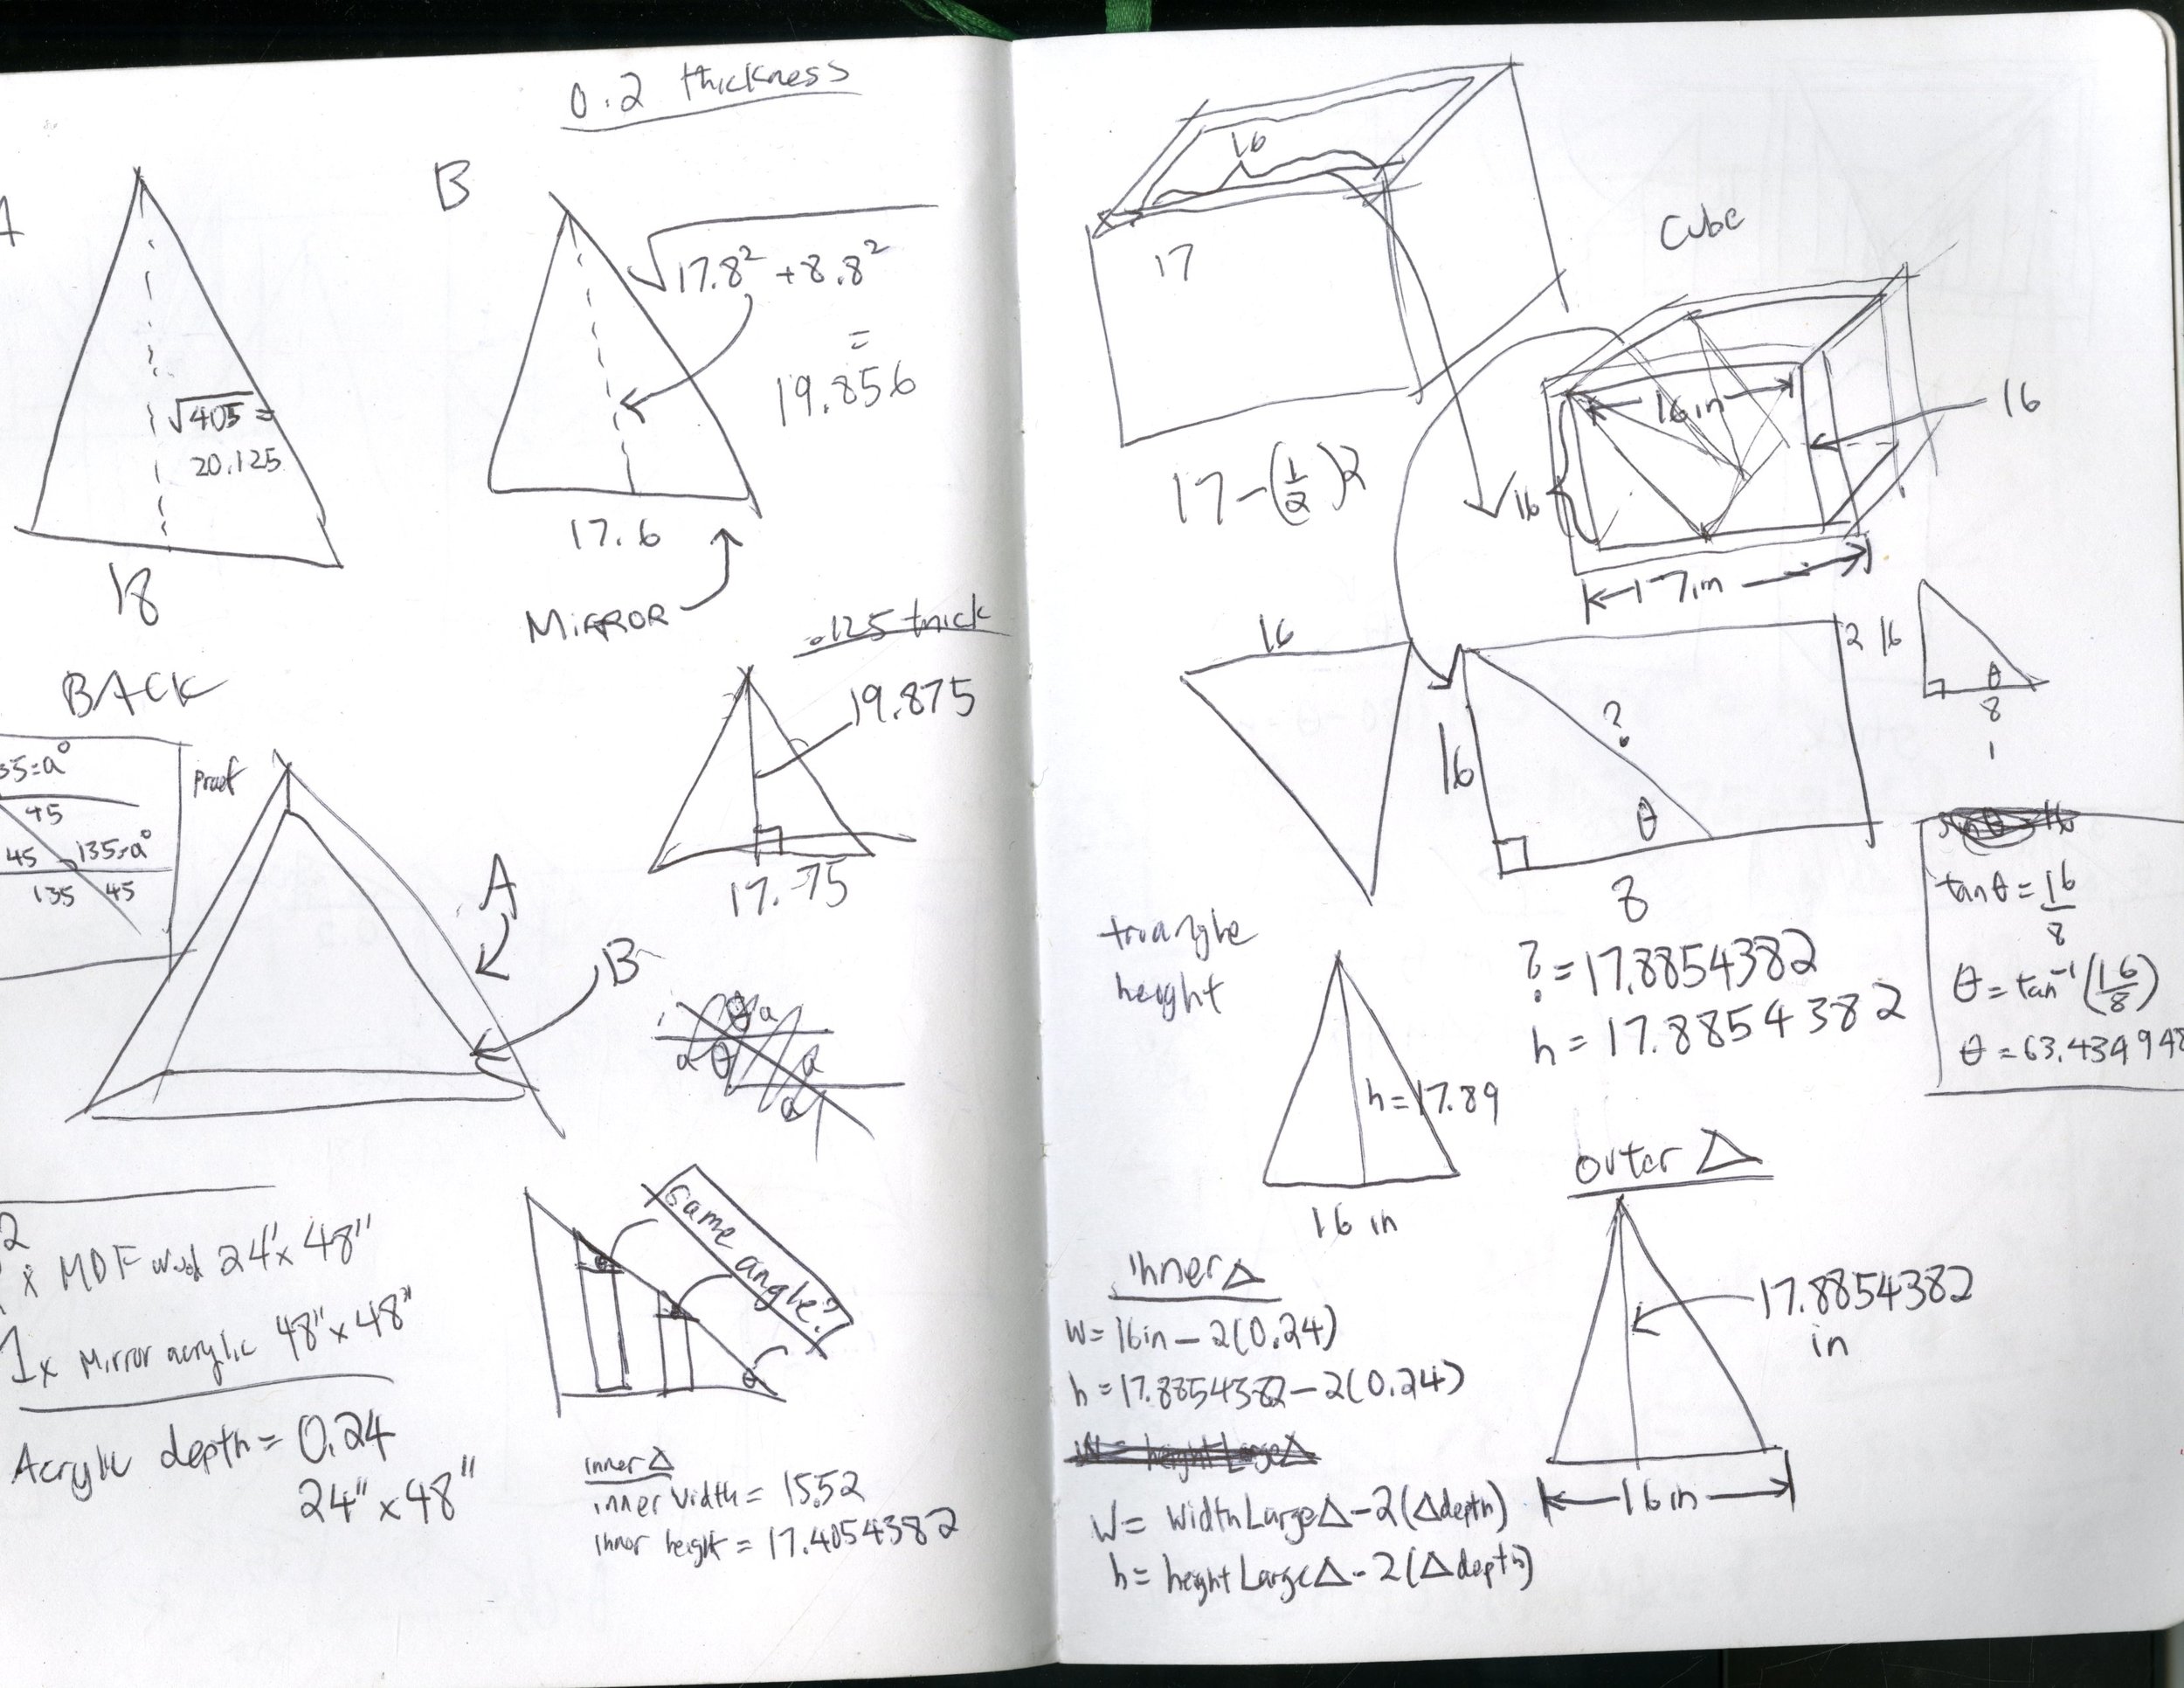 0.2 thickness
A
√405 =
20.125
18
B
√17.8² + 8.8²
=
19.856
17.6
MIRROR
.125 thick
19.875
17.75
BACK
35=a°
45
45
135=a°
135
45
Proof
A
B
θ
a
a
θ
a
a
2
x MDF wood 24" x 48"
1x Mirror acrylic 48" x 48"
Acrylic depth = 0.24
24" x 48"
same
angle?
θ
θ
inner Δ
inner width = 15.52
inner height = 17.4054382
16
17
17-(1/2)2
Cube
16 in
16
16
17 in
16
16
?
θ
8
2
16
θ
8
1
tanθ = 16/8
θ = tan⁻¹(16/8)
θ = 63.434948
? = 17.8854382
h = 17.8854382
triangle
height
h = 17.89
16 in
inner Δ
w = 16in - 2(0.24)
h = 17.8854382 - 2(0.24)
w = height Large Δ
W = width Large Δ - 2(Δdepth)
h = height Large Δ - 2(Δdepth)
outer Δ
17.8854382
in
16 in